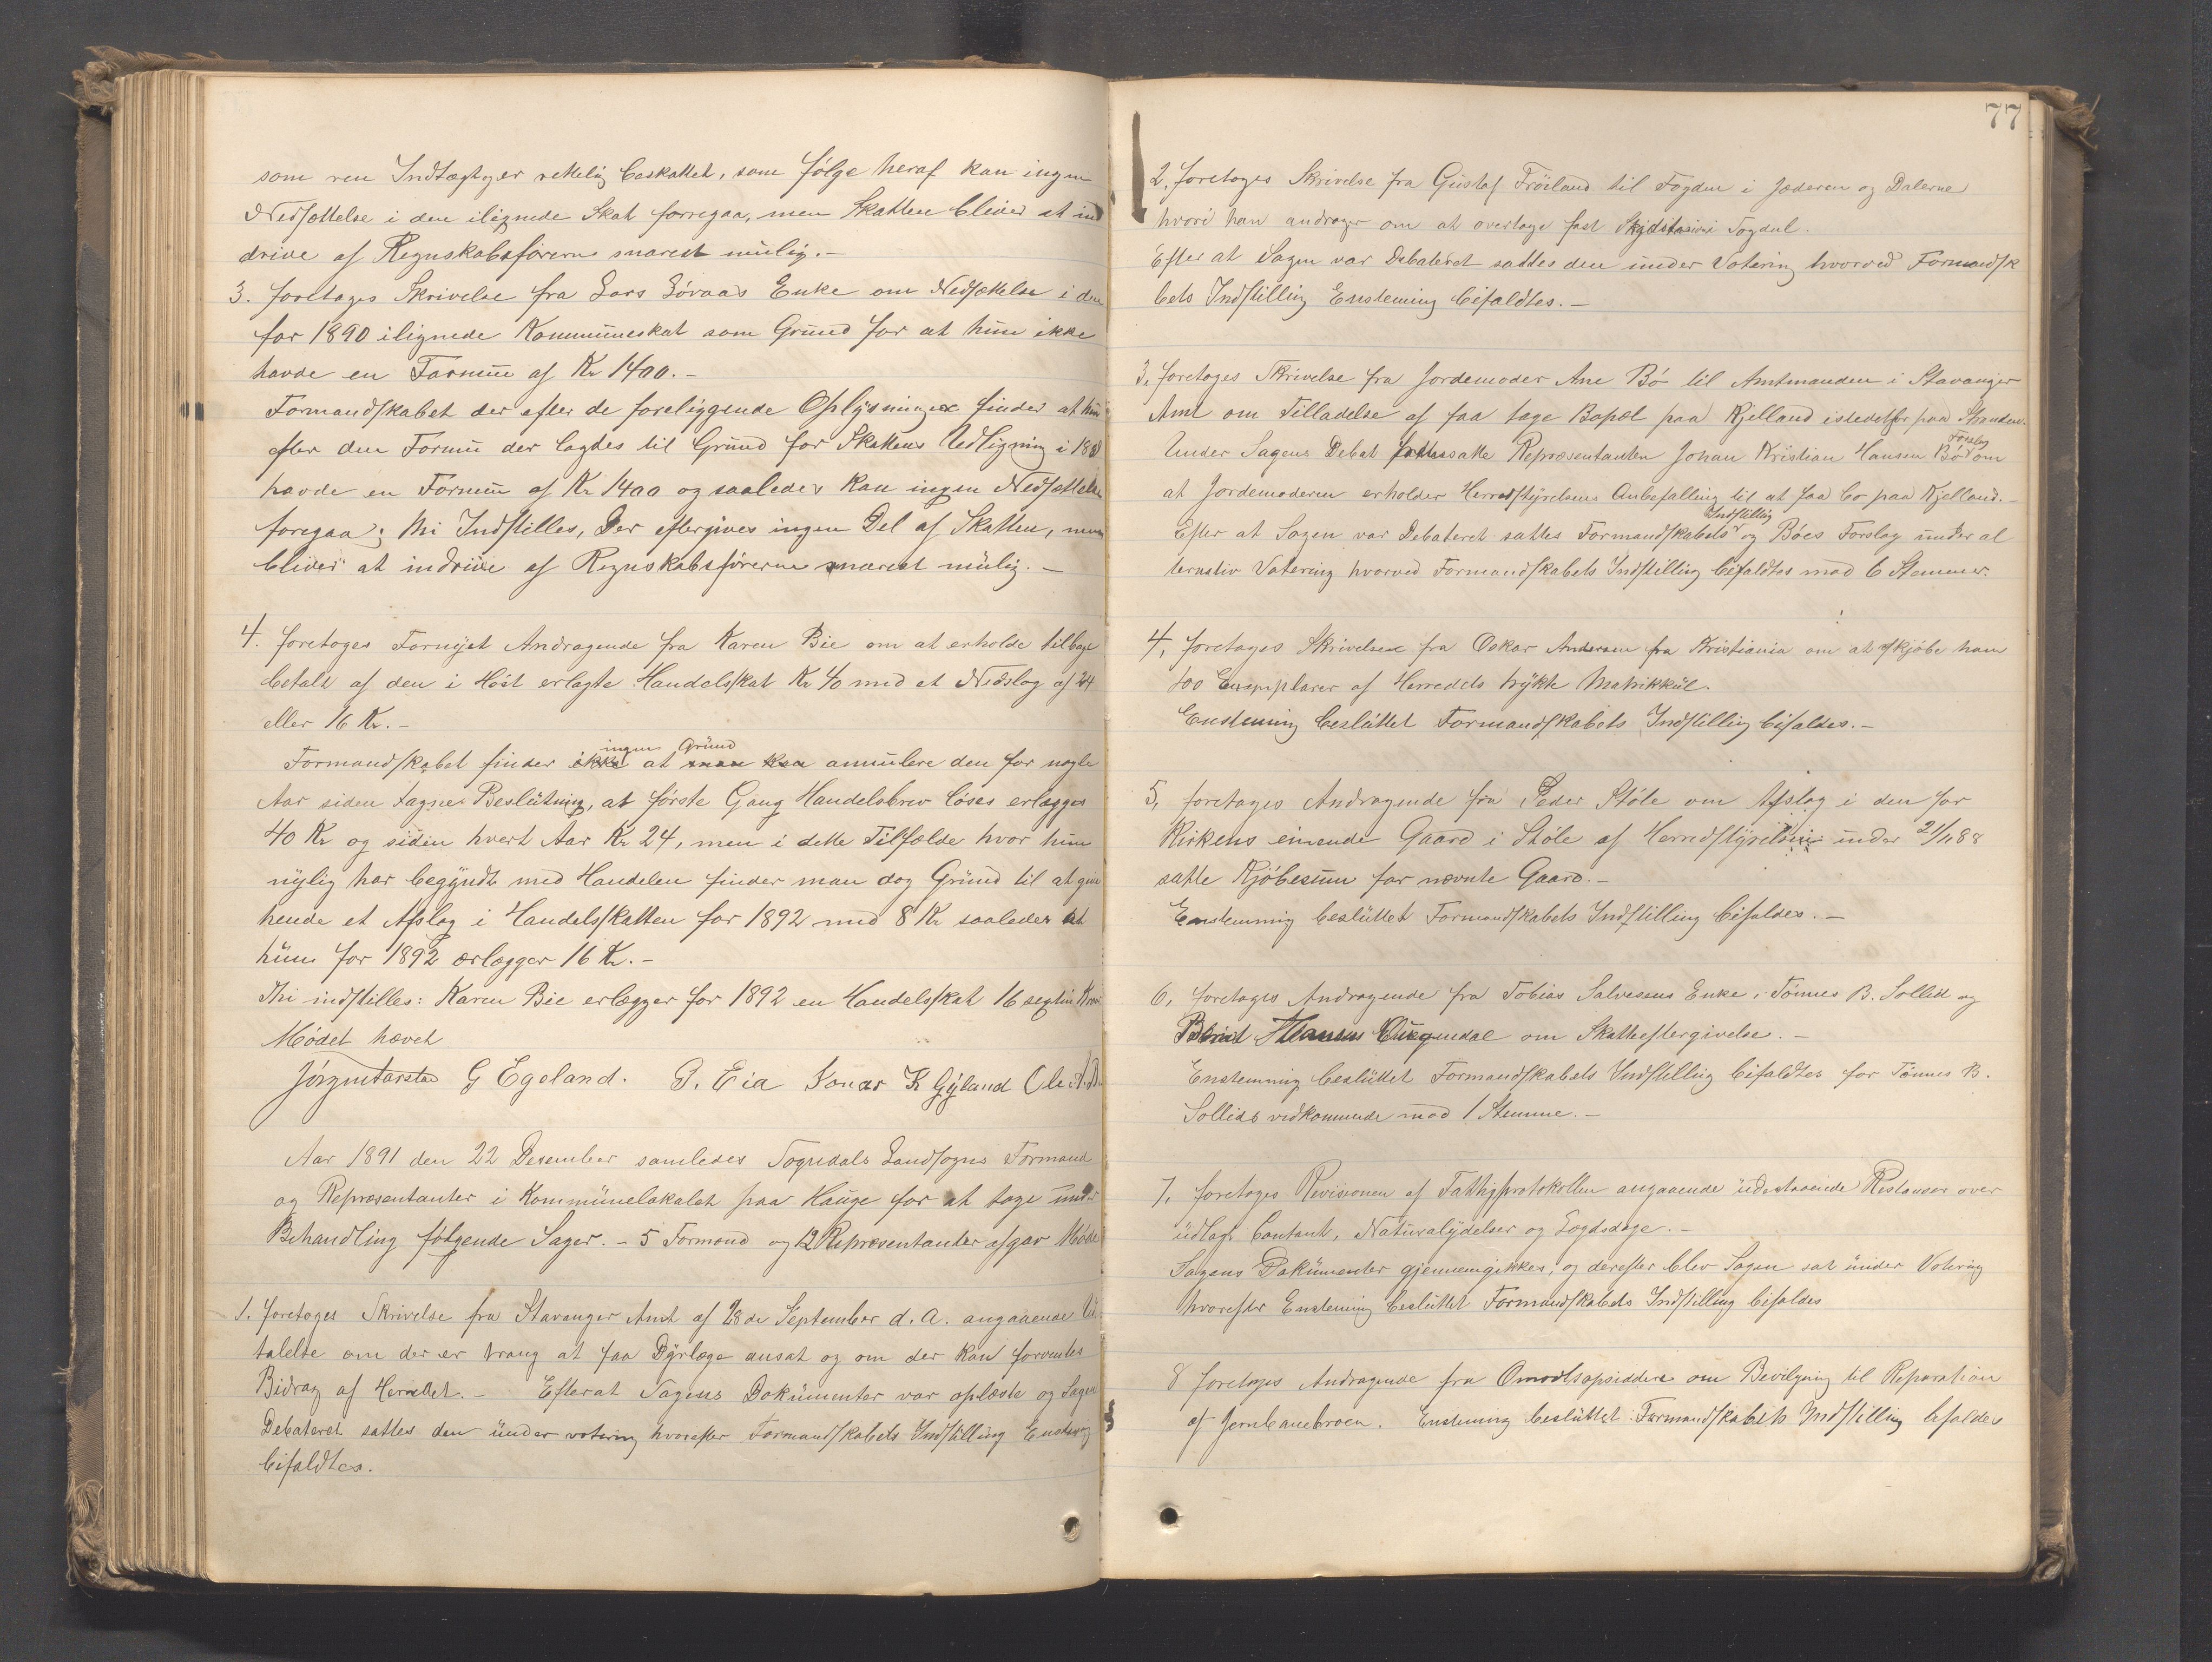 som ren Indtægt er rettelig beskattet, som følge heraf kan ingen
Nedsættelse i den ilignede Skat forregaa, men Skatten bliver at ind
drive af Regnskabsføreren snarest mulig.-
3. foretages Skrivelse fra Lars Løvaas Enke om Nedsættelse i den
for 1890 ilignede Kommuneskat som Grund for at hun ikke
havde en Formue af Kr 1400.-
Formandskabet der efter de foreliggende Oplysninger finder at hun
efter den Formu der lagdes til Grund for Skattens Udligning i 18
havde en Formue af Kr 1400 og saaledes kan ingen Nedsættelse
foregaa; thi Indstilles, Der eftergives ingen Del af Skatten, men
bliver at indrive af Regnskabsføreren snarest mulig.-
4. foretages Fornyet Andragende fra Karen Bie om at erholde tilbage
betalt af den i Høst erlagte Handelsskat Kr 40 med et Nedslag af 24
eller 16 Kr.-
Formandskabet finder ingen Grund at annulere den for nogle
Aar siden tagne Beslutning, at første Gang Handelsbrev løses erlægges
40 Kr og siden hvert Aar Kr 24, men i dette Tilfælde hvor hun
nylig har begyndt med Handelen finder man dog Grund til at give
hende et Afslag i Handelsskatten for 1892 med 8 Kr saaledes at
hun for 1892 erlægger 16 Kr.-
Thi indstilles: Karen Bie erlægger for 1892 en Handelsskat 16 sextin Kroner
Mødet hævet
Jørgen Tarstad G Egeland. P. Eia Jonas K Gyland Ole A.
Aar 1891 den 22 Desember samledes Sogndals Landsogns Formænd
og Repræsentanter i Kommunelokalet paa Hauge for at tage under
Behandling følgende Sager.- 5 Formænd og 12 Repræsentanter afgav Møde
1. foretages Skrivelse fra Stavanger Amt af 28de September d. A. angaaende Ud
talelse om der er trang at faa Dyrlæge ansat og om der kan forventes
Bidrag af Herredet.- Efterat Sagens Dokumenter var oplæste og Sagen
Debateret sattes den under votering hvorefter Formandskabets Indstilling Enstemig
bifaldtes.
77
2, foretages Skrivelse fra Gustaf Frøiland til Fogden i Jæderen og Dalerne
hvori han andrager om at overtage fast Skydstasion i Sogndal.
Efter at Sagen var Debateret sattes den under Votering hvorved Formandsk
bets Indstilling Enstemig bifaldtes.-
3, foretages Skrivelse fra Jordemoder Ane Bø til Amtmanden i Stavanger
Amt om Tilladelse af faa tage Bopæl paa Kjelland istedetfor paa Stranden.
Under Sagens Debat satte Repræsentanten Johan Kristian Hansen Bø Forslag om
at Jordemoderen erholder Herredstyrelsens Anbefalling til at faa bo paa Kjelland.-
Efter at Sagen var Debateret sattes Formandskabets Indstilling og Bøes Forslag under al
ternativ Votering hvorved Formandskabets Indstilling bifaldtes mod 6 Stemmer.
4, foretages Skrivelse fra Oskar Andersen fra Kristiania om at afkjøbe ham
100 Exemplarer af Herredets trykte Matrikkul.
Enstemmig besluttet Formandskabets Indstilling bifaldes.-
5, foretages Andragende fra Peder Støle om Afslag i den for
Kirkens eiende Gaard i Støle af Herredstyrelsen under 21/4 88
satte Kjøbesum for nevnte Gaard.-
Enstemmig besluttet Formandskabets Indstilling bifaldes.-
6, foretages Andragende fra Tobias Salvesens Enke, Tønnes B. Sollid og
Hansen om Skatteeftergivelse.-
Enstemmig besluttet Formandskabets Indstilling bifaldtes for Tønnes B.
Sollids vedkommende mod 1 Stemme.-
7, foretages Revisionen af Fattigprotokollen angaaende udestaaende Restanser over
udlagt Contant, Naturalydelser og Lægdsdage.-
Sagens Dokumenter gjennemgikkes, og derefter blev Sagen sat under Votering
hvorefter Enstemig besluttet Formandskabets Indstilling bifaldes
8 foretages Andragende fra Omodtsopsiddere om Bevilgning til Reparation
af Jernbanebroen. Enstemig besluttet Formandskabets Indstilling bifaldes